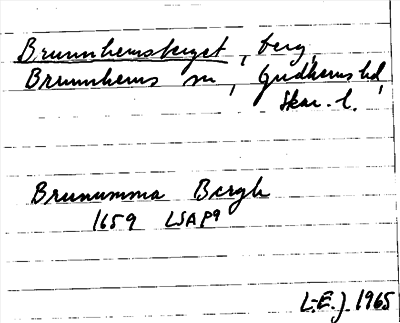 Brunnhemsberget, berg,
Brunnhems sn, Gudhems hd,
Skar. l.
Brunumma Bergh
1659 LSA P9
L-E.J. 1965